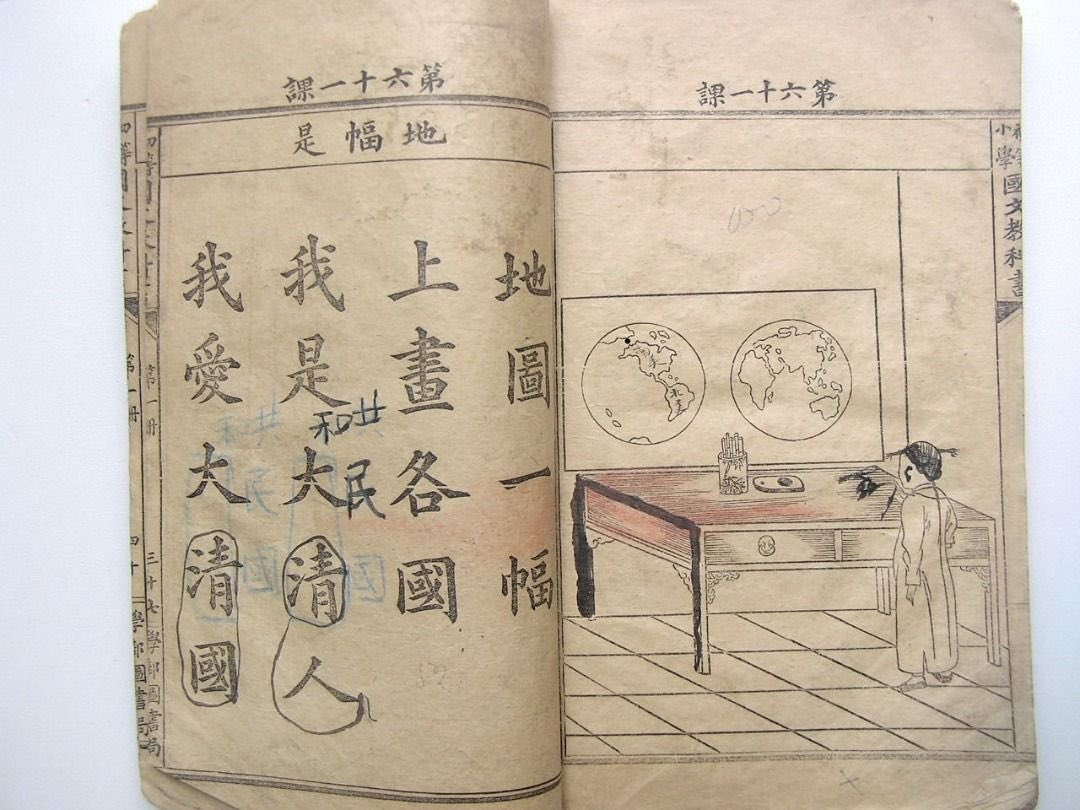 第六十一課
小學
國文教科書
第六十一課
地幅是
地圖一幅
上畫各國
我是大清人
共和
民
我愛大清國
第一冊
三十七
學部圖書局
第一冊
四十
學部圖書局